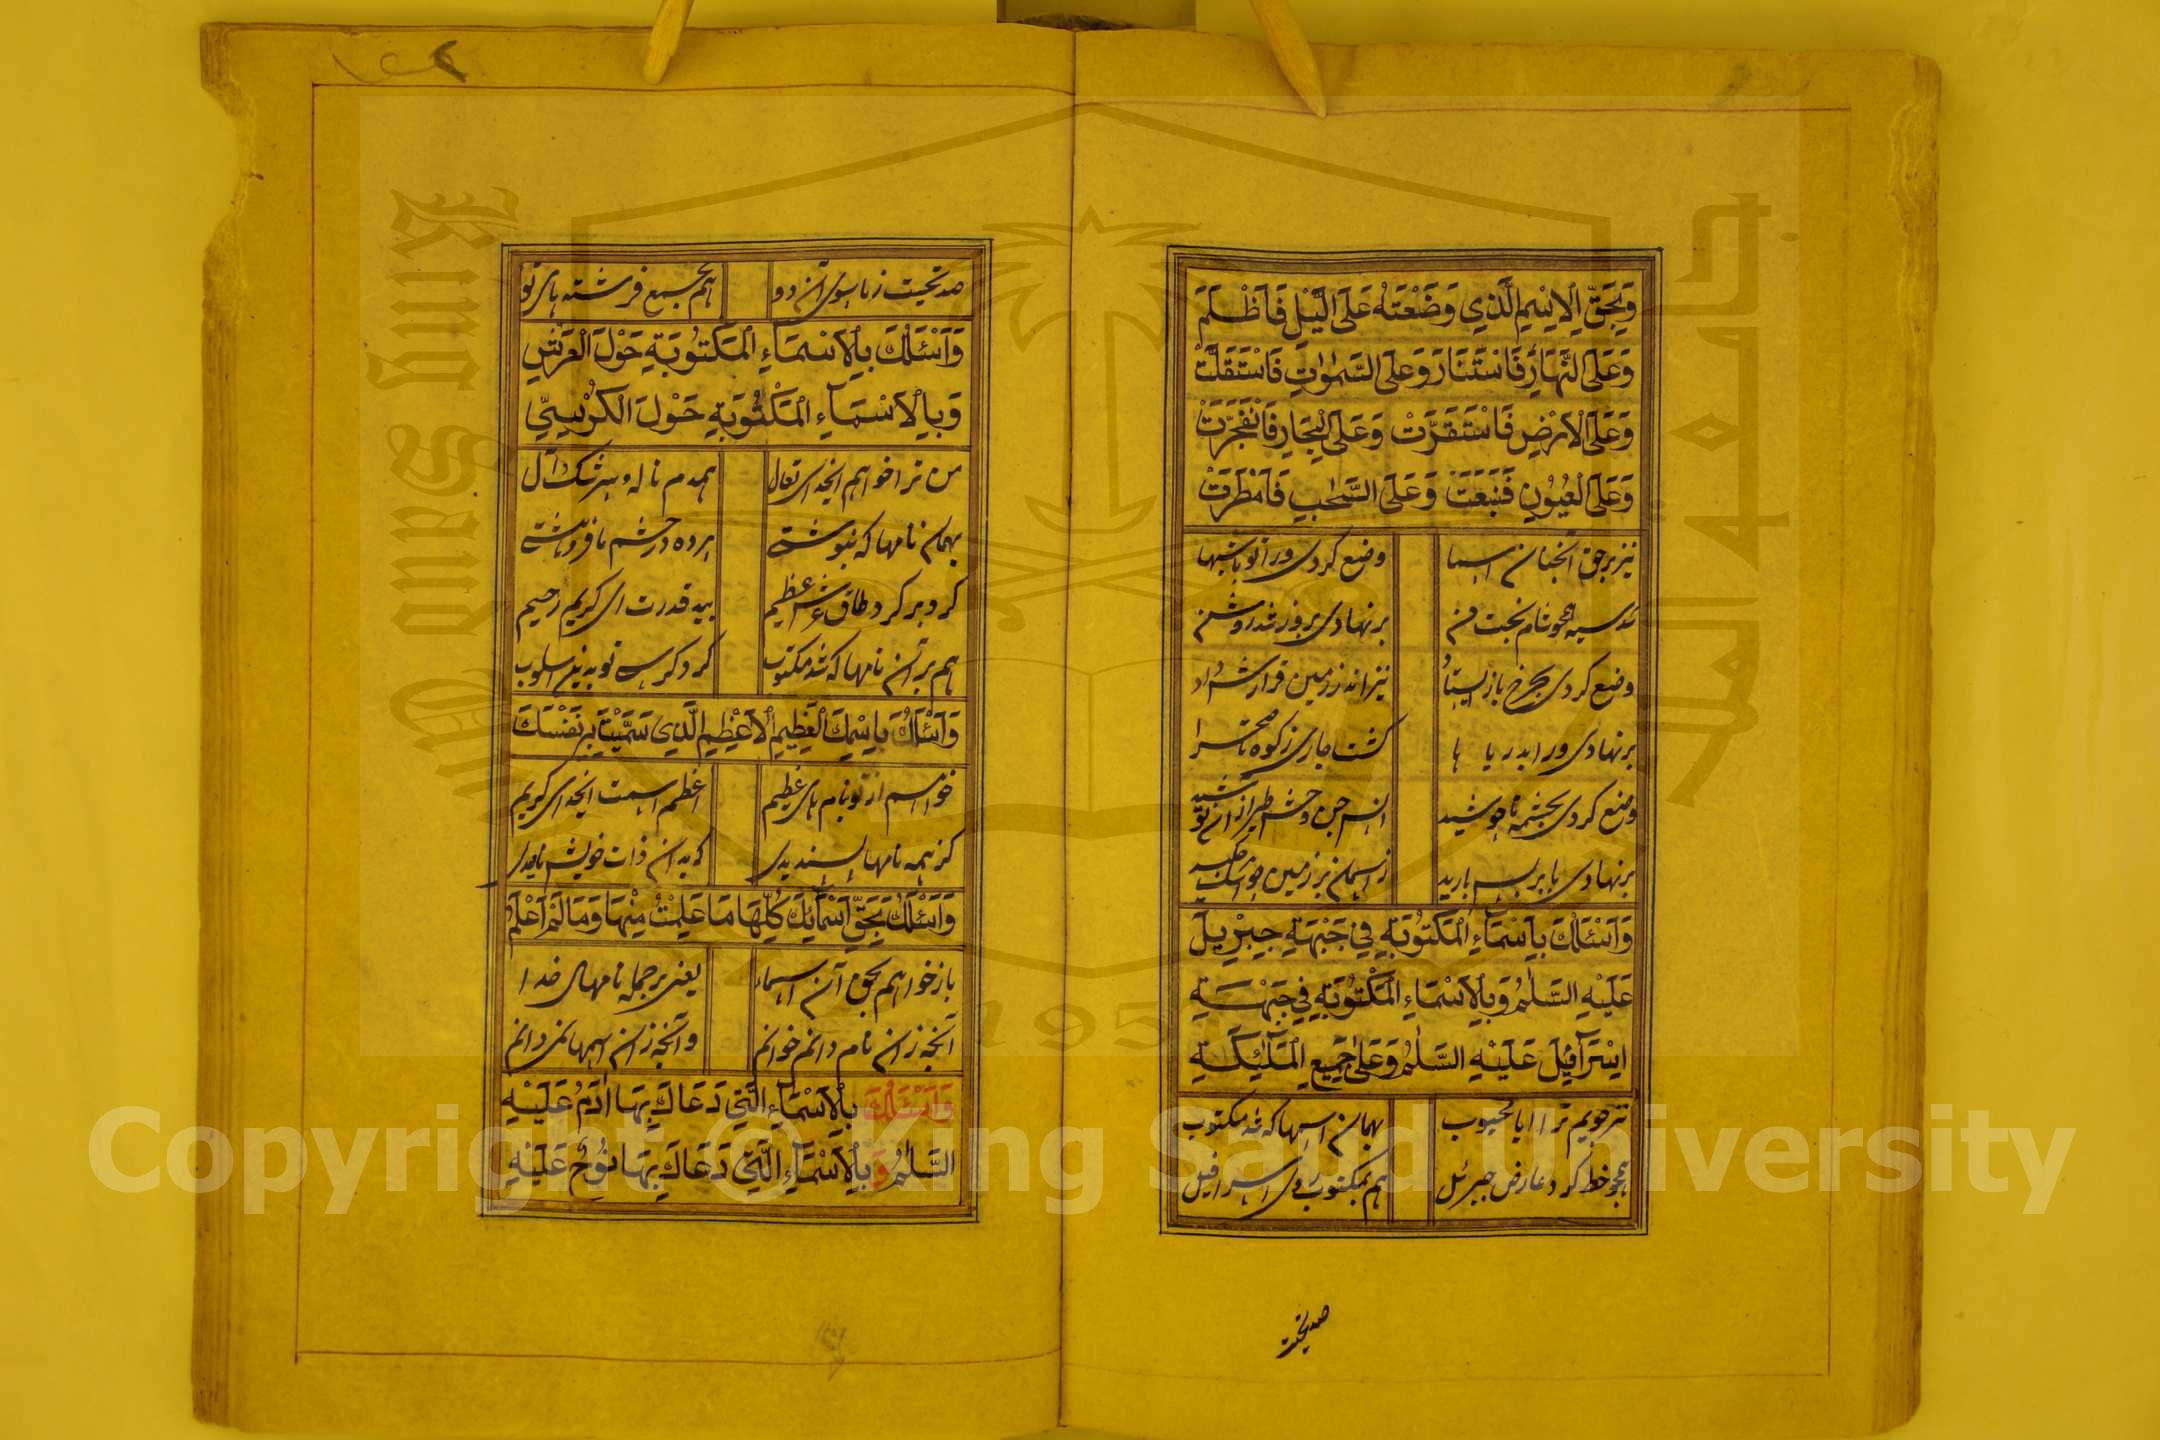 وَبِحَقِّ الْاِسْمِ الَّذِي وَضَعْتَهُ عَلَى الَّيْلِ فَاَظْلَمَ
وَعَلَى النَّهَارِ فَاسْتَنَارَ وَعَلَى السَّمٰوٰاتِ فَاسْتَقَلَّتْ
وَعَلَى الْاَرْضِ فَاسْتَقَرَّتْ وَعَلَى الْبِحَارِ فَانْفَجَرَتْ
وَعَلَى الْعُيُوْنِ فَنَبَعَتْ وَعَلَى السَّحٰبِ فَاَمْطَرَتْ
نیز بر حق آنچنان اسما وضع کردی ورا تو باشبها
شد سیه همچو شام بخت من برنهادی بروز شد روشن
وضع کردی بچرخ باز نیز اندر زمین قرارش داد
برنهادی ورا بدریا ها گشت جاری زکوه تا صحرا
وضع کردی بچشمه تا جوشید انس جن وحش طیر ازان
برنهادی بابر پس بارید زاسمان بر زمین
وَاَسْئَلُكَ بِاَسْمَاءِ الْمَكْتُوْبَةِ فِي جَبْهَةِ جِبْرِيْلَ
عَلَيْهِ السَّلٰمُ وَبِالْاَسْمَاءِ الْمَكْتُوْبَةِ فِي جَبْهَةِ
اِسْرَآفِيْلَ عَلَيْهِ السَّلٰمُ وَعَلٰى جَمِيْعِ الْمَلٰئِكَةِ
جویم ترا ایا محبوب بهمان اسمها که شد مکتوب
همچو خط گرد عارض جبرئیل هم بمکتوب روی اسرافیل
صد تحیت
صد تحیت زما بسوی آن دو هم بجمیع فرشته های تو
وَاَسْئَلُكَ بِالْاَسْمَاءِ الْمَكْتُوْبَةِ حَوْلَ الْعَرْشِ
وَبِالْاَسْمَآءِ الْمَكْتُوْبَةِ حَوْلَ الْكُرْسِيِّ
من ترا خواهم ایخدای تعال همدم ناله و سرشک
بهمان نامها که بنوشتی
کرد بر کرد طاق عرش عظیم بید قدرت ای کریم رحیم
هم بر آن نامها که شد مکتوب کرد کرسی تو بدین اسلوب
وَاَسْئَلُكَ بِاسْمِكَ الْعَظِيْمِ الْاَعْظَمِ الَّذِي سَمَّيْتَ بِهٖ نَفْسَكَ
خواهم از تو بنام های عظیم اعظم اسمت ایخدای کریم
کز همه نامها پسندیدی که بدان ذات خویش نامیدی
وَاَسْئَلُكَ بِحَقِّ اَسْمَآئِكَ كُلِّهَا مَا عَلِمْتُ مِنْهَا وَمَا لَمْ اَعْلَمْ
باز خواهم بحق آن اسماء یعنی بر جمله نامهای خدا
آنچه زان نام دانم خوانم و آنچه زان اسمها نمی دانم
وَاَسْئَلُكَ بِالْاَسْمَآءِ الَّتِي دَعَاكَ بِهَا اٰدَمُ عَلَيْهِ
السَّلٰمُ وَبِالْاَسْمَآءِ الَّتِي دَعَاكَ بِهَا نُوْحٌ عَلَيْهِ
King Saud University
جامعة الملك سعود
1957
Copyright © King Saud University